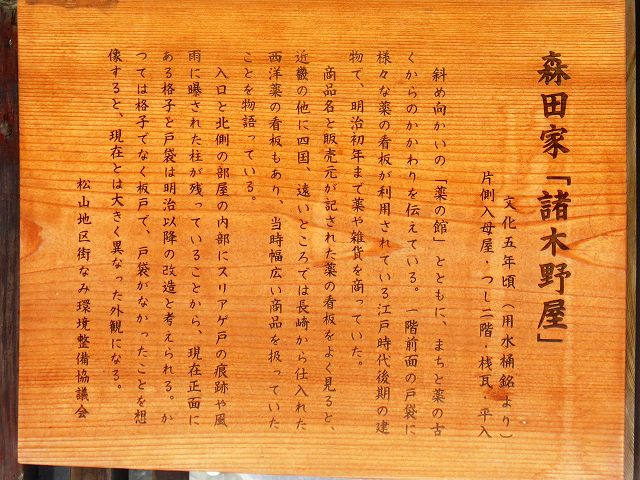 森田家「諸木野屋」
文化五年頃(用水桶銘より)
片側入母屋・つし二階・桟瓦・平入
斜め向かいの「薬の館」とともに、まちと薬の古
くからのかかわりを伝えている。一階前面の戸袋に
様々な薬の看板が利用されている江戸時代後期の建
物で、明治初年まで薬や雑貨を商っていた。
商品名と販売元が記された薬の看板をよく見ると、
近畿の他に四国、遠いところでは長崎から仕入れた
西洋薬の看板もあり、当時幅広い商品を扱っていた
ことを物語っている。
入口と北側の部屋の内部にスリアゲ戸の痕跡や風
雨に曝された柱が残っていることから、現在正面に
ある格子と戸袋は明治以降の改造と考えられる。か
つては格子でなく板戸で、戸袋がなかったことを想
像すると、現在とは大きく異なった外観になる。
松山地区街なみ環境整備協議会